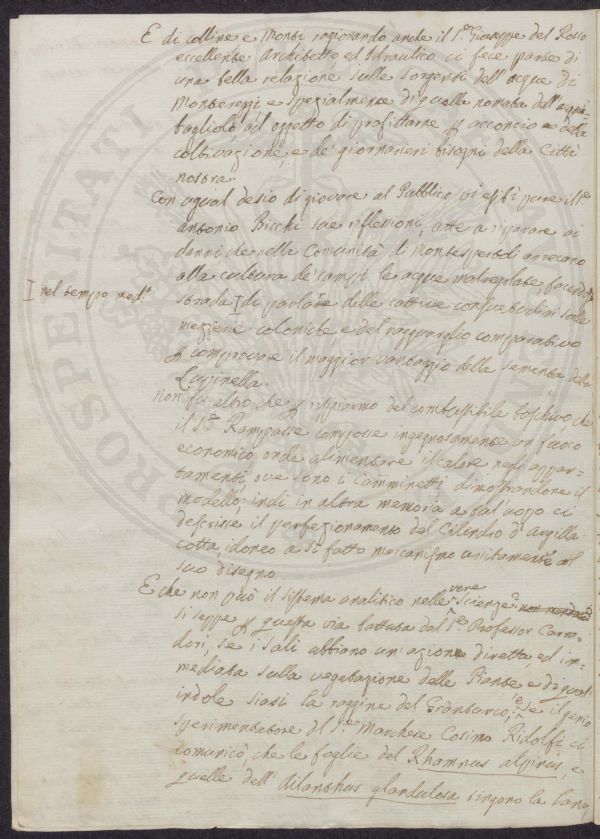 E di colline e Monti ragionando anche il S.r Giuseppe del Rosso
eccellente Architetto ed Idraulico ci fece parte di
una bella relazione sulle sorgenti dell'acque di
Montereggi e spezialmente di quella nomata dell'acqui-
tagliolo ad oggetto di profittarne p acconcio della
coltivazione, e de' giornarieri bisogni della Città
nostra.
Con ugual desio di giovare al Pubblico vi esibì pure il S.r
Antonio Bicchi sue riflessioni, atte a riparare ai
danni che nella Comunità di Montespertoli arrecano
alla cultura de' campi le acque malregolate facendosi
I nel tempo med.o
strada I di parlare delle cattive consuetudini sulle
mezzerie coloniche, e del ragguaglio comparativo
p comprovare il maggior vantaggio della sementa della
Lupinella.
Non fu altro che p risparmio del combustibile boschivo, che
il S.r Rampasse compose ingegnosamente un fuoco
economico onde alimentare il calore negli appar-
tamenti, ove sono i Camminetti dimostrandone il
modello; indi in altra memoria a tal uopo ci
descrisse il perfezionamento del Cilindro d'argilla
cotta, idoneo a sì fatto meccanismo unitamente al
suo disegno.
E che non può il sistema analitico nelle vere scienze?
si seppe p questa via battuta dal S.r Professor Carra-
dori, se i sali abbiano un'azione diretta ed im-
mediata sulla vegetazione delle Piante e di qual
indole siasi la ruggine del Granturco; e se il genio
sperimentatore del S.r Marchese Cosimo Ridolfi ci
comunicò, che le foglie del Rhamnus alpinus, e
quelle dell'Ailanthus glandulosa tingono la lana